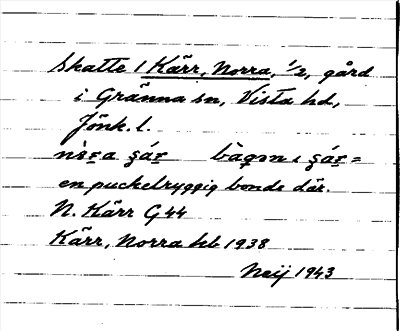 Skatte 1 Kärr, Norra, 1/2, gård
i Gränna sn, Vista hd,
Jönk. l.
en puckelryggig bonde där.
N. Kärr G 44
Kärr, Norra hb 1938
Neij 1943